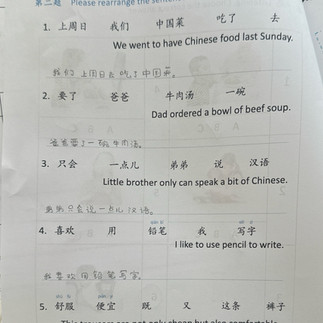 第二题 Please rearrange the sentence
1. 上周日 我们 中国菜 吃了 去
We went to have Chinese food last Sunday.
我们上周日去吃了中国菜。
2. 要了 爸爸 牛肉汤 一碗
Dad ordered a bowl of beef soup.
爸爸要了一碗牛肉汤。
3. 只会 一点儿 弟弟 说 汉语
Little brother only can speak a bit of Chinese.
弟弟只会说一点儿汉语。
4. 喜欢 用 铅笔 我 写字
I like to use pencil to write.
我喜欢用铅笔写字。
5. 舒服 便宜 既 又 这条 裤子